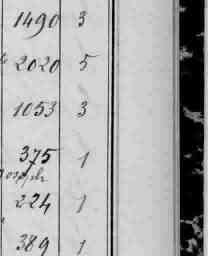 1490 3
2020 5
1053 3
375 1
224 1
389 1